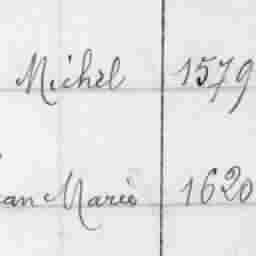 Michel 1579
ean Marie 1620